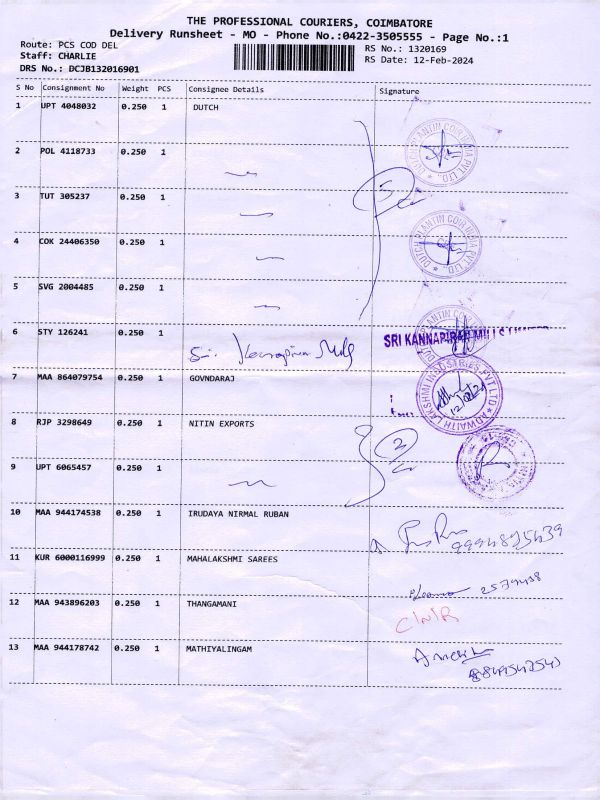 THE PROFESSIONAL COURIERS, COIMBATORE
Delivery Runsheet - MO - Phone No.:0422-3505555 - Page No.:1
Route: PCS COD DEL
RS No.: 1320169
Staff: CHARLIE
RS Date: 12-Feb-2024
DRS No.: DCJB132016901
S No Consignment No Weight PCS Consignee Details Signature
1 UPT 4048032 0.250 1 DUTCH
2 POL 4118733 0.250 1
3 TUT 305237 0.250 1
5
4 COK 24406350 0.250 1
5 SVG 2004485 0.250 1
6 STY 126241 0.250 1 Sri. Mills SRI KANNAPIRAN MILLS
7 MAA 864079754 0.250 1 GOVNDARAJ
8 RJP 3298649 0.250 1 NITIN EXPORTS
2
9 UPT 6065457 0.250 1
10 MAA 944174538 0.250 1 IRUDAYA NIRMAL RUBAN
11 KUR 6000116999 0.250 1 MAHALAKSHMI SAREES
12 MAA 943896203 0.250 1 THANGAMANI
13 MAA 944178742 0.250 1 MATHIYALINGAM